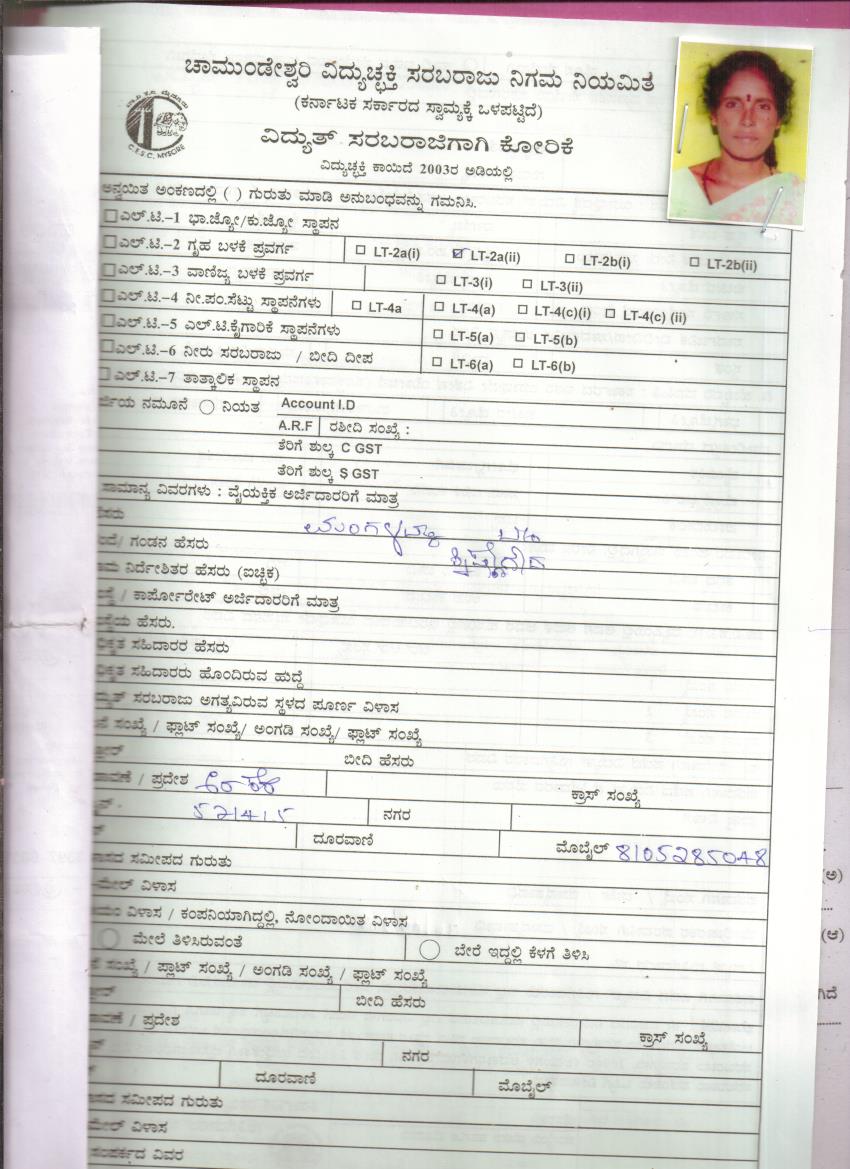 ಚಾಮುಂಡೇಶ್ವರಿ ವಿದ್ಯುಚ್ಛಕ್ತಿ ಸರಬರಾಜು ನಿಗಮ ನಿಯಮಿತ
(ಕರ್ನಾಟಕ ಸರ್ಕಾರದ ಸ್ವಾಮ್ಯಕ್ಕೆ ಒಳಪಟ್ಟಿದೆ)
C.E.S.C, MYSORE
ವಿದ್ಯುತ್ ಸರಬರಾಜಿಗಾಗಿ ಕೋರಿಕೆ
ವಿದ್ಯುಚ್ಛಕ್ತಿ ಕಾಯಿದೆ 2003ರ ಅಡಿಯಲ್ಲಿ
ಅನ್ವಯಿತ ಅಂಕಣದಲ್ಲಿ ( ) ಗುರುತು ಮಾಡಿ ಅನುಬಂಧವನ್ನು ಗಮನಿಸಿ.
ಎಲ್.ಟಿ.-1 ಭಾ.ಜ್ಯೋ/ಕು.ಜ್ಯೋ ಸ್ಥಾಪನ
ಎಲ್.ಟಿ.-2 ಗೃಹ ಬಳಕೆ ಪ್ರವರ್ಗ LT-2a(i) LT-2a(ii) LT-2b(i) LT-2b(ii)
ಎಲ್.ಟಿ.-3 ವಾಣಿಜ್ಯ ಬಳಕೆ ಪ್ರವರ್ಗ LT-3(i) LT-3(ii)
ಎಲ್.ಟಿ.-4 ನೀ.ಪಂ.ಸೆಟ್ಟು ಸ್ಥಾಪನೆಗಳು LT-4a LT-4(a) LT-4(c)(i) LT-4(c) (ii)
ಎಲ್.ಟಿ.-5 ಎಲ್.ಟಿ.ಕೈಗಾರಿಕೆ ಸ್ಥಾಪನೆಗಳು LT-5(a) LT-5(b)
ಎಲ್.ಟಿ.-6 ನೀರು ಸರಬರಾಜು / ಬೀದಿ ದೀಪ LT-6(a) LT-6(b)
ಎಲ್.ಟಿ.-7 ತಾತ್ಕಾಲಿಕ ಸ್ಥಾಪನ
ನಮೂನೆ ನಿಯತ Account I.D
A.R.F ರಶೀದಿ ಸಂಖ್ಯೆ :
ತೆರಿಗೆ ಶುಲ್ಕ C GST
ತೆರಿಗೆ ಶುಲ್ಕ S GST
ಸಾಮಾನ್ಯ ವಿವರಗಳು : ವೈಯಕ್ತಿಕ ಅರ್ಜಿದಾರರಿಗೆ ಮಾತ್ರ
ಗಂಡನ ಹೆಸರು
ನಿರ್ದೇಶಿತರ ಹೆಸರು (ಐಚ್ಛಿಕ)
/ ಕಾರ್ಪೋರೇಟ್ ಅರ್ಜಿದಾರರಿಗೆ ಮಾತ್ರ
ಹೆಸರು.
ಸಹಿದಾರರ ಹೆಸರು
ಸಹಿದಾರರು ಹೊಂದಿರುವ ಹುದ್ದೆ
ಸರಬರಾಜು ಅಗತ್ಯವಿರುವ ಸ್ಥಳದ ಪೂರ್ಣ ವಿಳಾಸ
ಸಂಖ್ಯೆ / ಫ್ಲಾಟ್ ಸಂಖ್ಯೆ/ ಅಂಗಡಿ ಸಂಖ್ಯೆ/ ಫ್ಲಾಟ್ ಸಂಖ್ಯೆ
ಬೀದಿ ಹೆಸರು
/ ಪ್ರದೇಶ ಕ್ರಾಸ್ ಸಂಖ್ಯೆ
571415 ನಗರ
ದೂರವಾಣಿ ಮೊಬೈಲ್ 8105285048
ಸಮೀಪದ ಗುರುತು
ವಿಳಾಸ
ವಿಳಾಸ / ಕಂಪನಿಯಾಗಿದ್ದಲ್ಲಿ, ನೋಂದಾಯಿತ ವಿಳಾಸ
ಮೇಲೆ ತಿಳಿಸಿರುವಂತೆ ಬೇರೆ ಇದ್ದಲ್ಲಿ ಕೆಳಗೆ ತಿಳಿಸಿ
ಸಂಖ್ಯೆ / ಫ್ಲಾಟ್ ಸಂಖ್ಯೆ / ಅಂಗಡಿ ಸಂಖ್ಯೆ / ಫ್ಲಾಟ್ ಸಂಖ್ಯೆ
ಬೀದಿ ಹೆಸರು
/ ಪ್ರದೇಶ ಕ್ರಾಸ್ ಸಂಖ್ಯೆ
ನಗರ
ದೂರವಾಣಿ ಮೊಬೈಲ್
ಸಮೀಪದ ಗುರುತು
ವಿಳಾಸ
ಸಂಪರ್ಕದ ವಿವರ